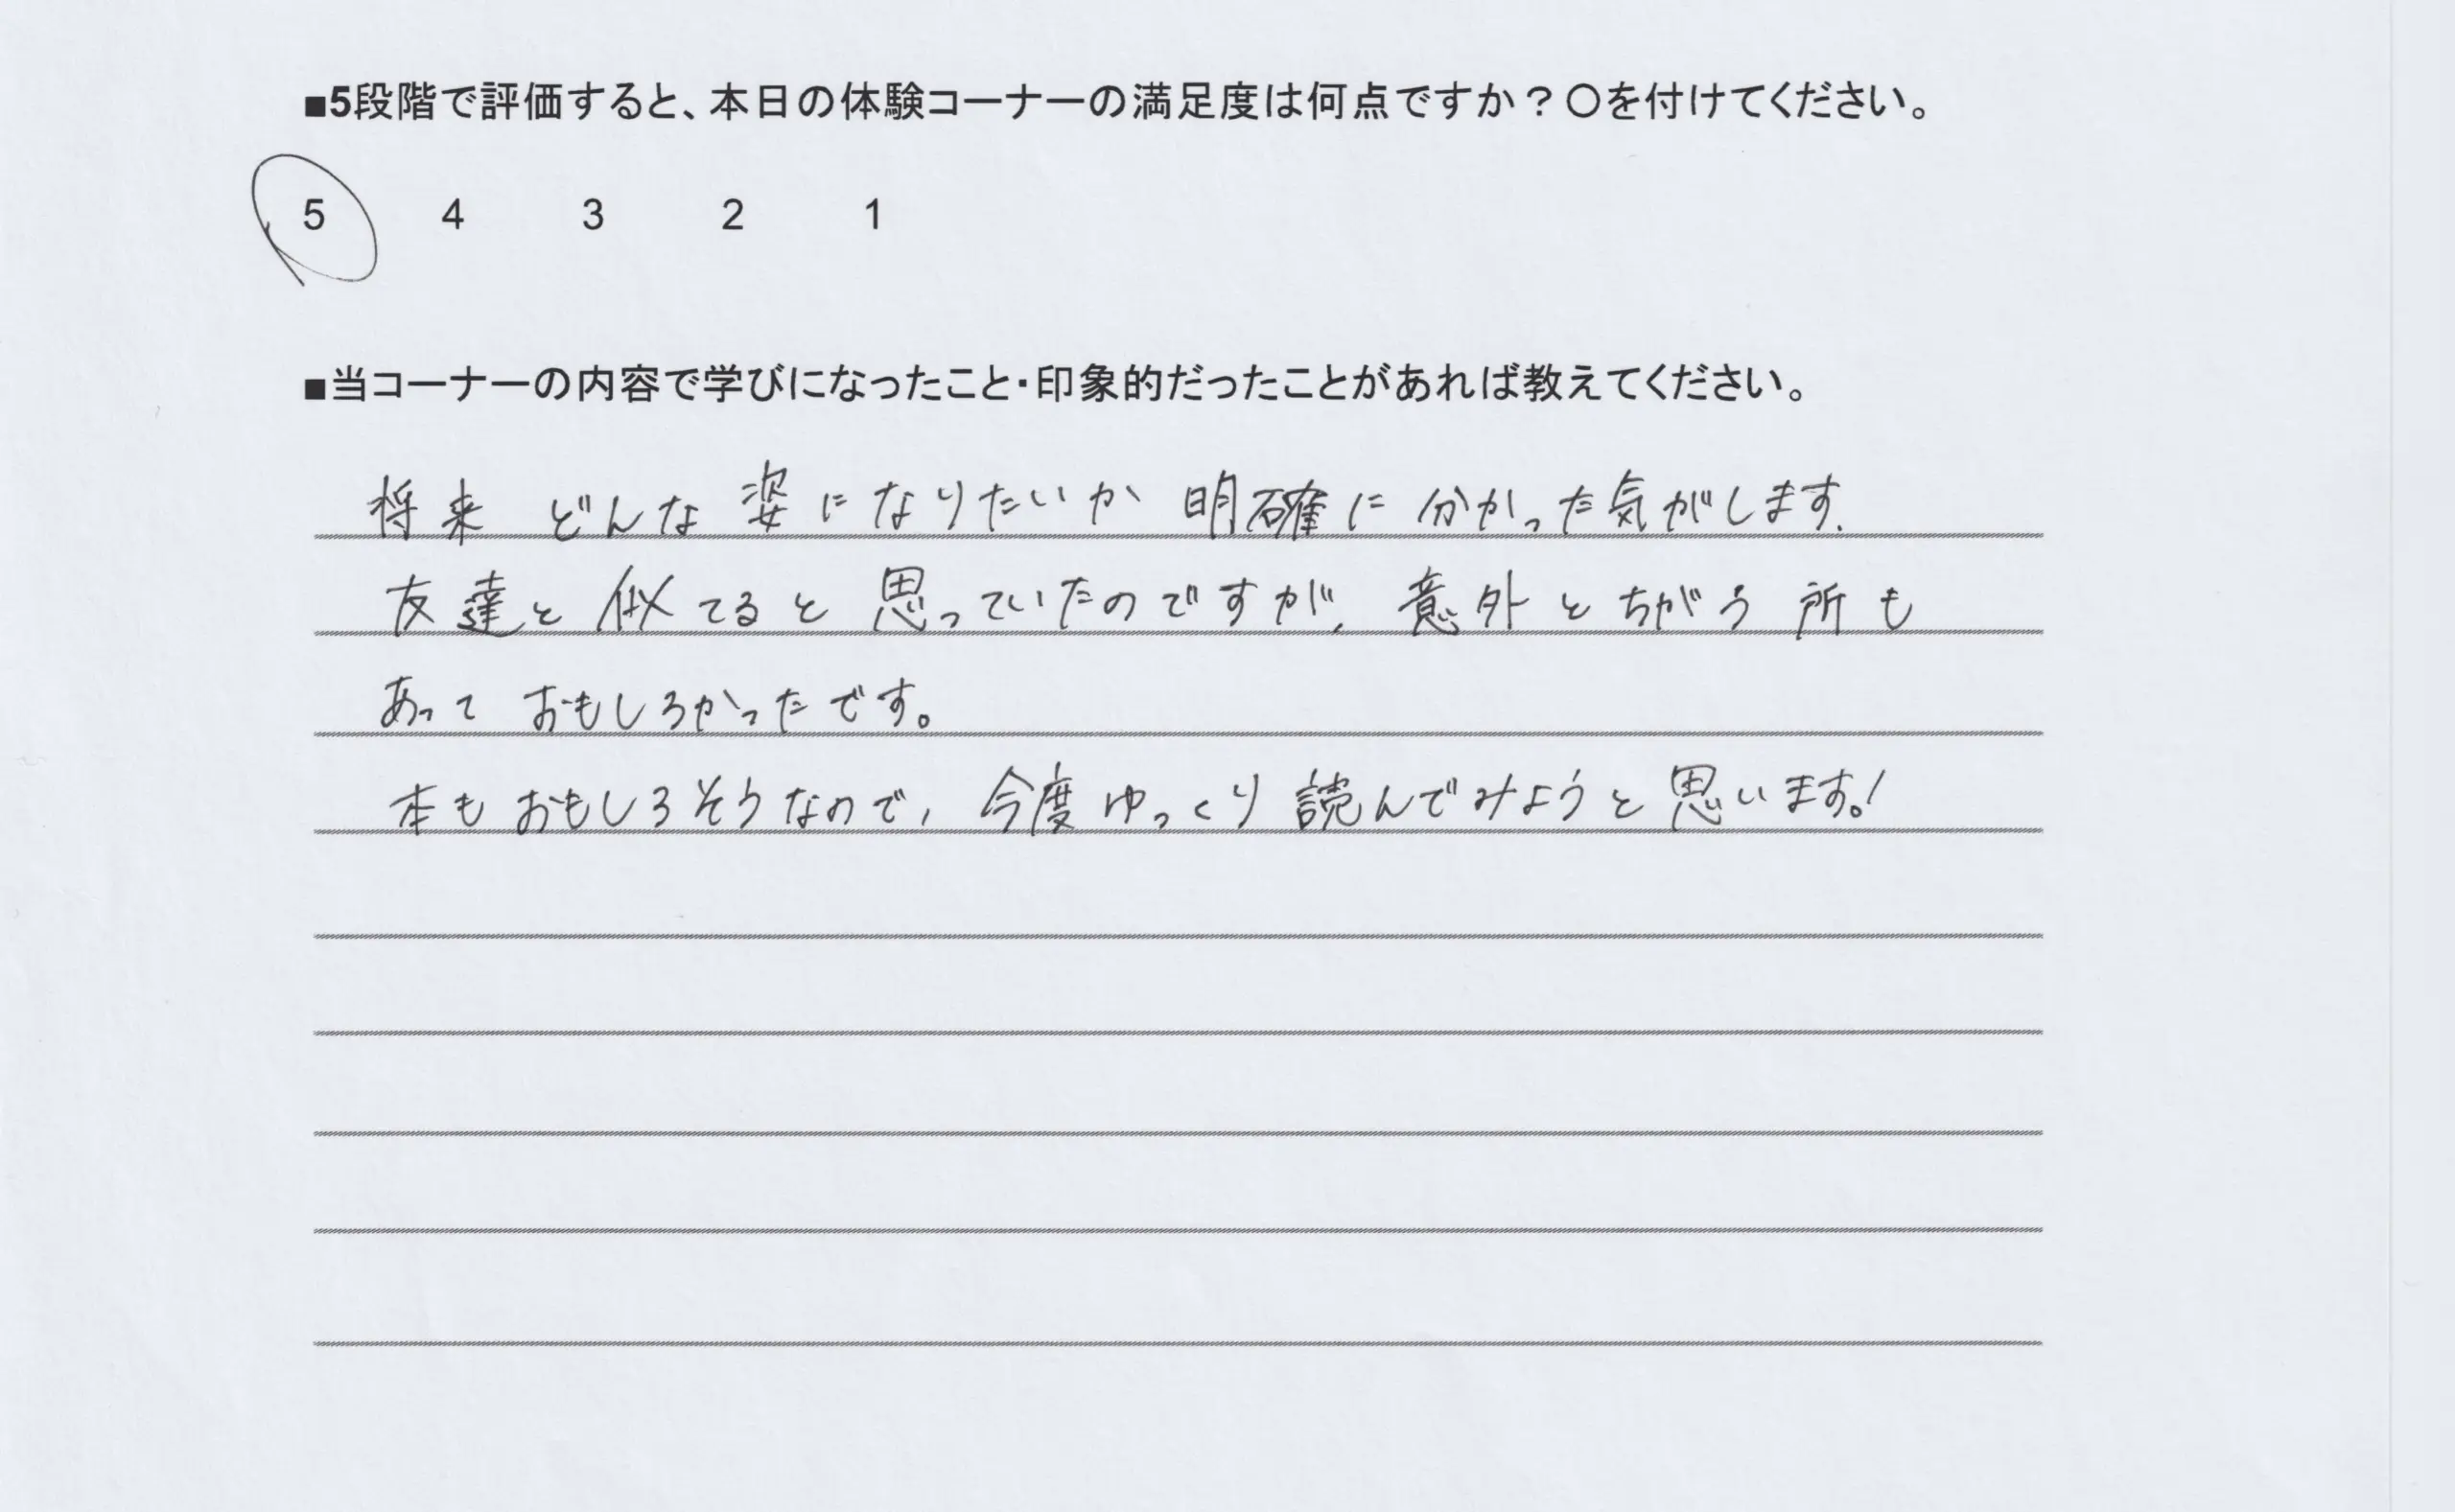 ■5段階で評価すると、本日の体験コーナーの満足度は何点ですか？〇を付けてください。
5 4 3 2 1
■当コーナーの内容で学びになったこと・印象的だったことがあれば教えてください。
将来 どんな 姿になりたいか 明確に 分かった気がします.
友達と 似てると 思っていたのですが、意外と ちがう 所も
あって おもしろかったです。
本も おもしろそうなので、今度 ゆっくり 読んでみようと 思います。!